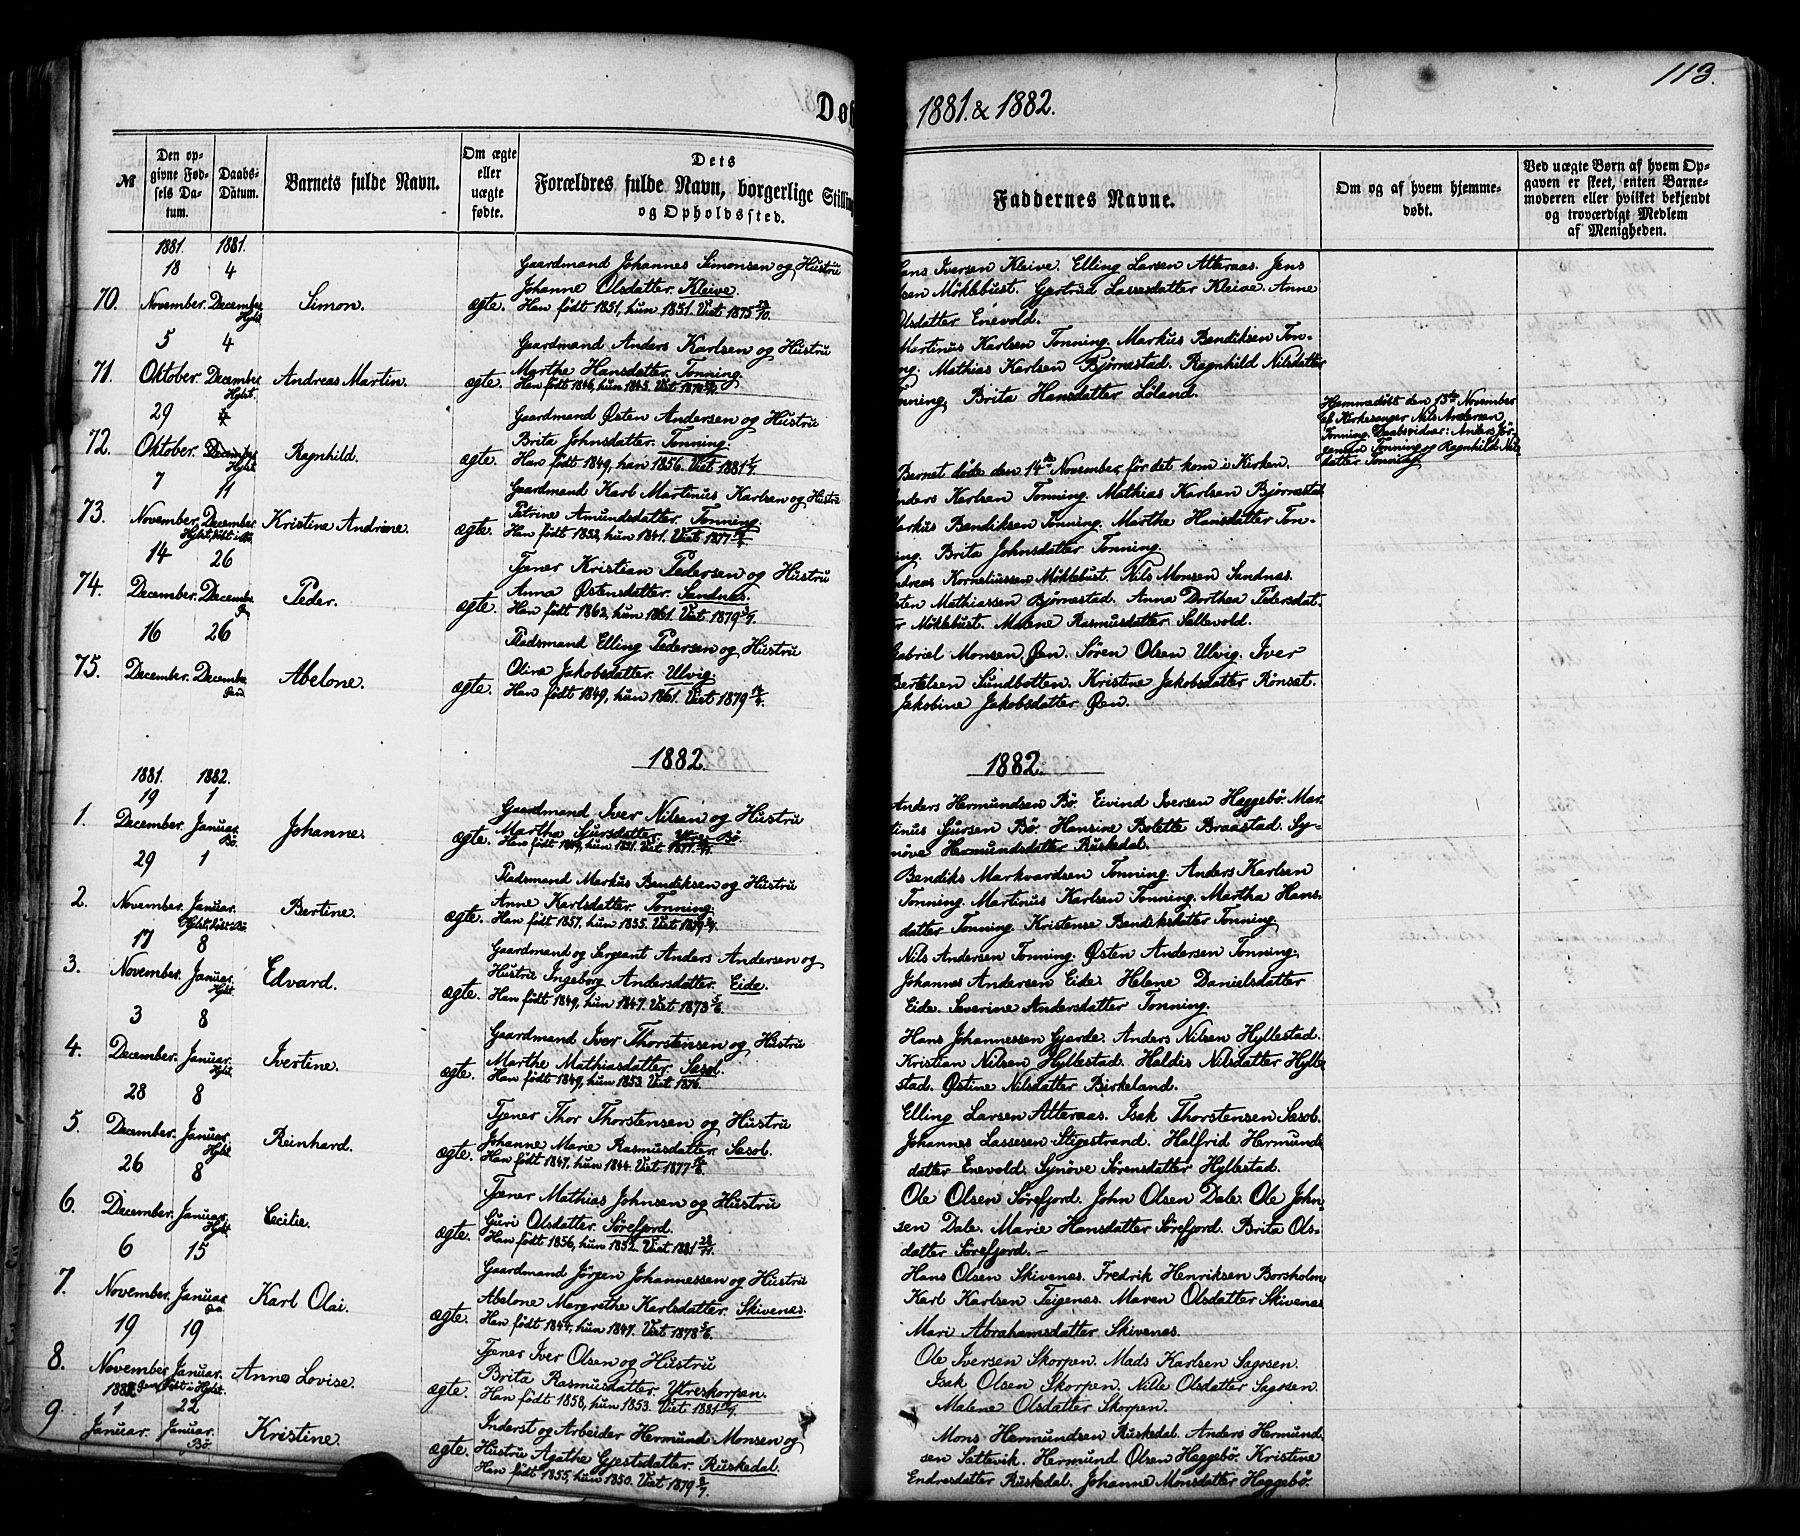 113.
Døb
1881. & 1882.
№
Den opgivne Fødsels Datum.
Daabs-Datum.
Barnets fulde Navn.
Om ægte eller uægte fødte.
Dets
Forældres fulde Navn, borgerlige Stilling
og Opholdssted.
Faddernes Navne.
Om og af hvem hjemmedøbt.
Ved uægte Børn af hvem Opgaven er skeet, enten Barnemoderen eller hvilket bekjendt og troværdigt Medlem af Menigheden.
1881. 1881.
18 4
70. November. December Hylst. Simon. ægte.
Gaardmand Johannes Simonsen og Hustru
Johanne Olsdatter. Kleive.
Han født 1851, hun 1851. Viet 1875
Hans Iversen Kleive. Elling Larsen Atteraas. Jens
Olsen Møklebust. Gjertrud Lassesdatter Kleive. Anne
Olsdatter Enevold.
5 4
71. Oktober. December Hylst. Andreas Martin. ægte.
Gaardmand Anders Karlsen og Hustru
Marthe Hansdatter. Tonning.
Han født 1846, hun 1845. Viet 1870
Martinus Karlsen Tonning. Markus Bendiksen Ton-
ning. Mathias Karlsen Bjørnestad. Ragnhild Nilsdatter
Tonning. Brita Hansdatter Løland.
29
72. Oktober. December Hylst. Ragnhild. ægte.
Gaardmand Østen Andersen og Hustru
Brita Johnsdatter. Tonning.
Han født 1849, hun 1856. Viet 1881
Barnet døde den 14de November, før det kom i Kirken.
Hjemmedøbt den 13de November
af Kirkesanger Nils Andersen
Tonning. Daabsvidner: Anders Jør-
gensen Tonning og Ragnhild Nils-
datter Tonning
7 11
73. November. December Kristine Andrine ægte.
Gaardmand Karl Martinus Karlsen og Hustru
Petrine Amundsdatter. Tonning.
Han født 1853, hun 1841. Viet 1877
Anders Karlsen Tonning. Mathias Karlsen Bjørnestad.
Markus Bendiksen Tonning. Marthe Hansdatter Ton-
ning. Brita Johnsdatter Tonning.
14 26
74. December. December Peder. ægte.
Tjener Kristian Pedersen og Hustru
Anna Østensdatter. Sandnes.
Han født 1862, hun 1861. Viet 1879
Andreas Korneliussen Møklebust. Nils Monsen Sandnes.
Østen Mathiassen Bjørnestad. Anna Dorthea Pedersdat-
ter Møklebust. Malene Rasmusdatter Sellevold.
16 26
75. December. December Abelone. ægte.
Pladsmand Elling Pedersen og Hustru
Olina Jakobsdatter. Ulvig.
Han født 1849, hun 1861. Viet 1879
Gabriel Monsen Øen. Søren Olsen Ulvig. Iver
Bertelsen Sundbotten. Kristine Jakobsdatter Rønset.
Jakobine Jakobsdatter Øen.
1882. 1882.
1881. 1882.
19 1
1. December. Januar. Bø. Johanne. ægte.
Gaardmand Iver Nilsen og Hustru
Martha Sjursdatter. Ytre Bø.
Han født 1849, hun 1851. Viet 1871
Anders Hermundsen Bø. Eivind Iversen Haggebø. Mar-
tinus Sjursen Bø. Hansine Bolette Braastad. Sy-
nøve Hermundsdatter Ruskedal.
29 1
2. November. Januar. Bertine. ægte.
Pladsmand Markus Bendiksen og Hustru
Anne Karlsdatter. Tonning.
Han født 1857, hun 1855. Viet 1879
Bendiks Markvardsen Tonning. Anders Karlsen
Tonning. Martinus Karlsen Tonning. Martha Hans-
datter Tonning. Kristense Bendiksdatter Tonning.
17 8
3. November. Januar. Hylst. Edvard. ægte.
Gaardmand og Sergeant Anders Andersen og
Hustru Ingeborg Andersdatter. Eide.
Han født 1849, hun 1847. Viet 1873
Nils Andersen Tonning. Østen Andersen Tonning.
Johannes Andersen Eide. Helene Danielsdatter
Eide. Severine Andersdatter Tonning.
3 8
4. December. Januar. Hylst. Ivertine. ægte.
Gaardmand Iver Thorstensen og Hustru
Marthe Mathiasdatter. Sæsol.
Han født 1849, hun 1853. Viet 1876.
Hans Johannessen Gjerde. Anders Nilsen Hyllestad.
Kristian Nilsen Hyllestad. Haldis Nilsdatter Hylle-
stad. Østine Nilsdatter Birkeland.
28 8
5. December. Januar. Hylst. Reinhard. ægte.
Tjener Thor Thorstensen og Hustru
Johanne Marie Rasmusdatter. Sæsol.
Han født 1847, hun 1844. Viet 1877
Elling Larsen Atteraas. Isak Thorstensen Sæsol.
Johannes Lassesen Stigestrand. Halfrid Hermunds-
datter Enevold. Synøve Sørensdatter Hyllestad.
26 8
6. December. Januar. Hylst. Cecilie. ægte.
Tjener Mathias Johnsen og Hustru
Guri Olsdatter. Sørefjord.
Han født 1856, hun 1852. Viet 1881
Ole Olsen Sørefjord. John Olsen Dale. Ole John-
sen Dale. Marie Hansdatter Sørefjord. Brita Ols-
datter Sørefjord.—
6 15
7. November. Januar. Karl Olai. ægte.
Gaardmand Jørgen Johannessen og Hustru
Abelone Margrethe Karlsdatter. Skivenes.
Han født 1844, hun 1847. Viet 1878
Hans Olsen Skivenes. Fredrik Henriksen Borsholm.
Karl Karlsen Teigenes. Maren Olsdatter Skivenes.
Mari Abrahamsdatter Skivenes.
19 19
8. November. Januar. Anne Lovise. ægte.
Tjener Iver Olsen og Hustru
Brita Rasmusdatter. Ytreskorpen.
Han født 1858, hun 1853. Viet 1881
Ole Iversen Skorpen. Mads Karlsen Sagosen.
Isak Olsen Skorpen. Nille Olsdatter Sagosen.
Malene Olsdatter Skorpen.
1882.
1 22
9. Januar. Januar. Bø. Kristine. ægte.
Inderst og Arbeider Hermund Monsen og
Hustru Agathe Gjestsdatter. Ruskedal.
Han født 1855, hun 1850. Viet 1879
Mons Hermundsen Ruskedal. Anders Hermund-
sen Sættevik. Hermund Olsen Haggebø. Kristine
Endresdatter Ruskedal. Johanne Monsdatter Haggebø.